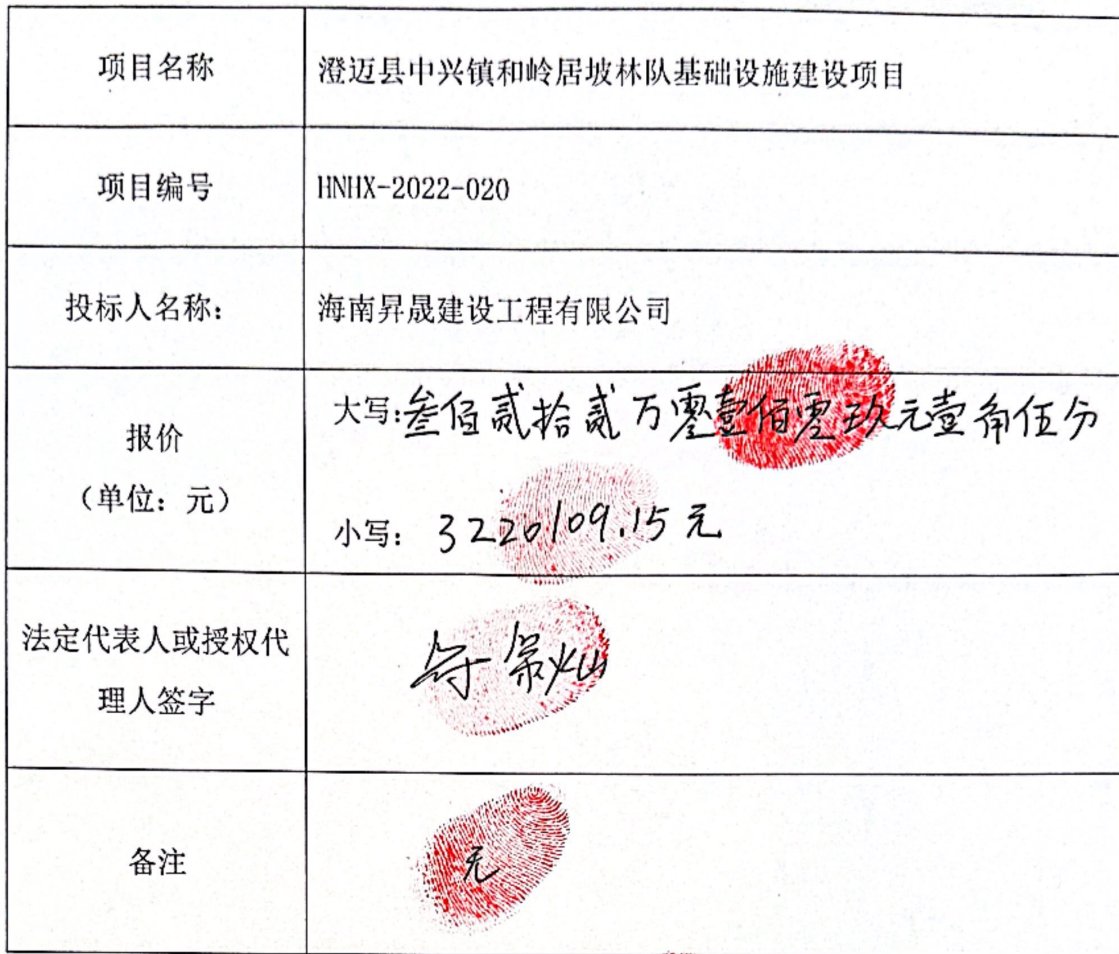 项目名称
澄迈县中兴镇和岭居坡林队基础设施建设项目
项目编号
HNHX-2022-020
投标人名称：
海南昇晟建设工程有限公司
报价
（单位：元）
大写:叁佰贰拾贰万零壹佰零玖元壹角伍分
小写: 3220109.15元
法定代表人或授权代
理人签字
备注
无